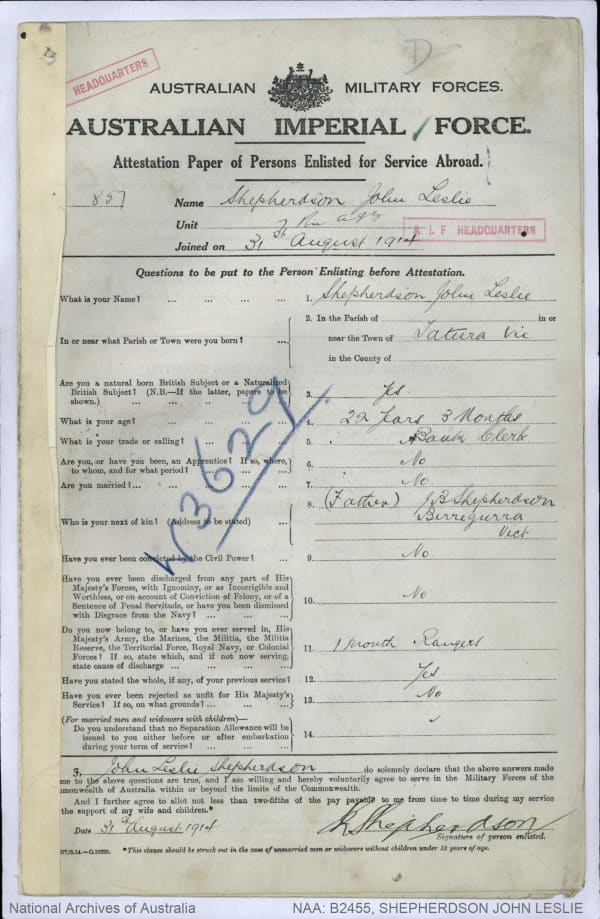 D
HEADQUARTERS
AUSTRALIAN MILITARY FORCES.
AUSTRALIAN IMPERIAL FORCE.
Attestation Paper of Persons Enlisted for Service Abroad.
857 Name Shepherdson John Leslie
Unit 7
A.I.F HEADQUARTERS
Joined on 31st August 1914
Questions to be put to the Person Enlisting before Attestation.
What is your Name? ... ... ... ... 1. Shepherdson John Leslie
2. In the Parish of in or
In or near what Parish or Town were you born? ... near the Town of Tatura Vic
in the County of
Are you a natural born British Subject or a Naturalized
British Subject? (N.B.—If the latter, papers to be
shown.) ... ... ... ... 3. Yes.
What is your age? ... ... ... ... 4. 22 Years 3 Months
What is your trade or calling? ... ... ... 5. Bank Clerk
Are you, or have you been, an Apprentice? If so, where,
to whom, and for what period? ... ... ... 6. No
Are you married?... ... ... ... 7. No.
8. (Father) J B Shepherdson
Who is your next of kin? (Address to be stated) ... Birregurra
Vict
Have you ever been convicted by the Civil Power? ... 9. No.
Have you ever been discharged from any part of His
Majesty's Forces, with Ignominy, or as Incorrigible and
Worthless, or on account of Conviction of Felony, or of a
Sentence of Penal Servitude, or have you been dismissed
with Disgrace from the Navy? ... ... ... 10. No
Do you now belong to, or have you ever served in, His
Majesty's Army, the Marines, the Militia, the Militia
Reserve, the Territorial Force, Royal Navy, or Colonial
Forces? If so, state which, and if not now serving,
state cause of discharge ... ... ... 11. 1 month Rangers
Have you stated the whole, if any, of your previous service? 12. Yes.
Have you ever been rejected as unfit for His Majesty's
Service? If so, on what grounds? ... ... 13. No
(For married men and widowers with children)—
Do you understand that no Separation Allowance will be
issued to you either before or after embarkation
during your term of service? ... ... ... 14.
W.3629
I, John Leslie Shepherdson do solemnly declare that the above answers made
me to the above questions are true, and I am willing and hereby voluntarily agree to serve in the Military Forces of the
mmonwealth of Australia within or beyond the limits of the Commonwealth.
And I further agree to allot not less than two-fifths of the pay payable to me from time to time during my service
the support of my wife and children.*
Date 31st August 1914 Shepherdson
Signature of person enlisted.
*This clause should be struck out in the case of unmarried men or widowers without children under 18 years of age.
National Archives of Australia NAA: B2455, SHEPHERDSON JOHN LESLIE